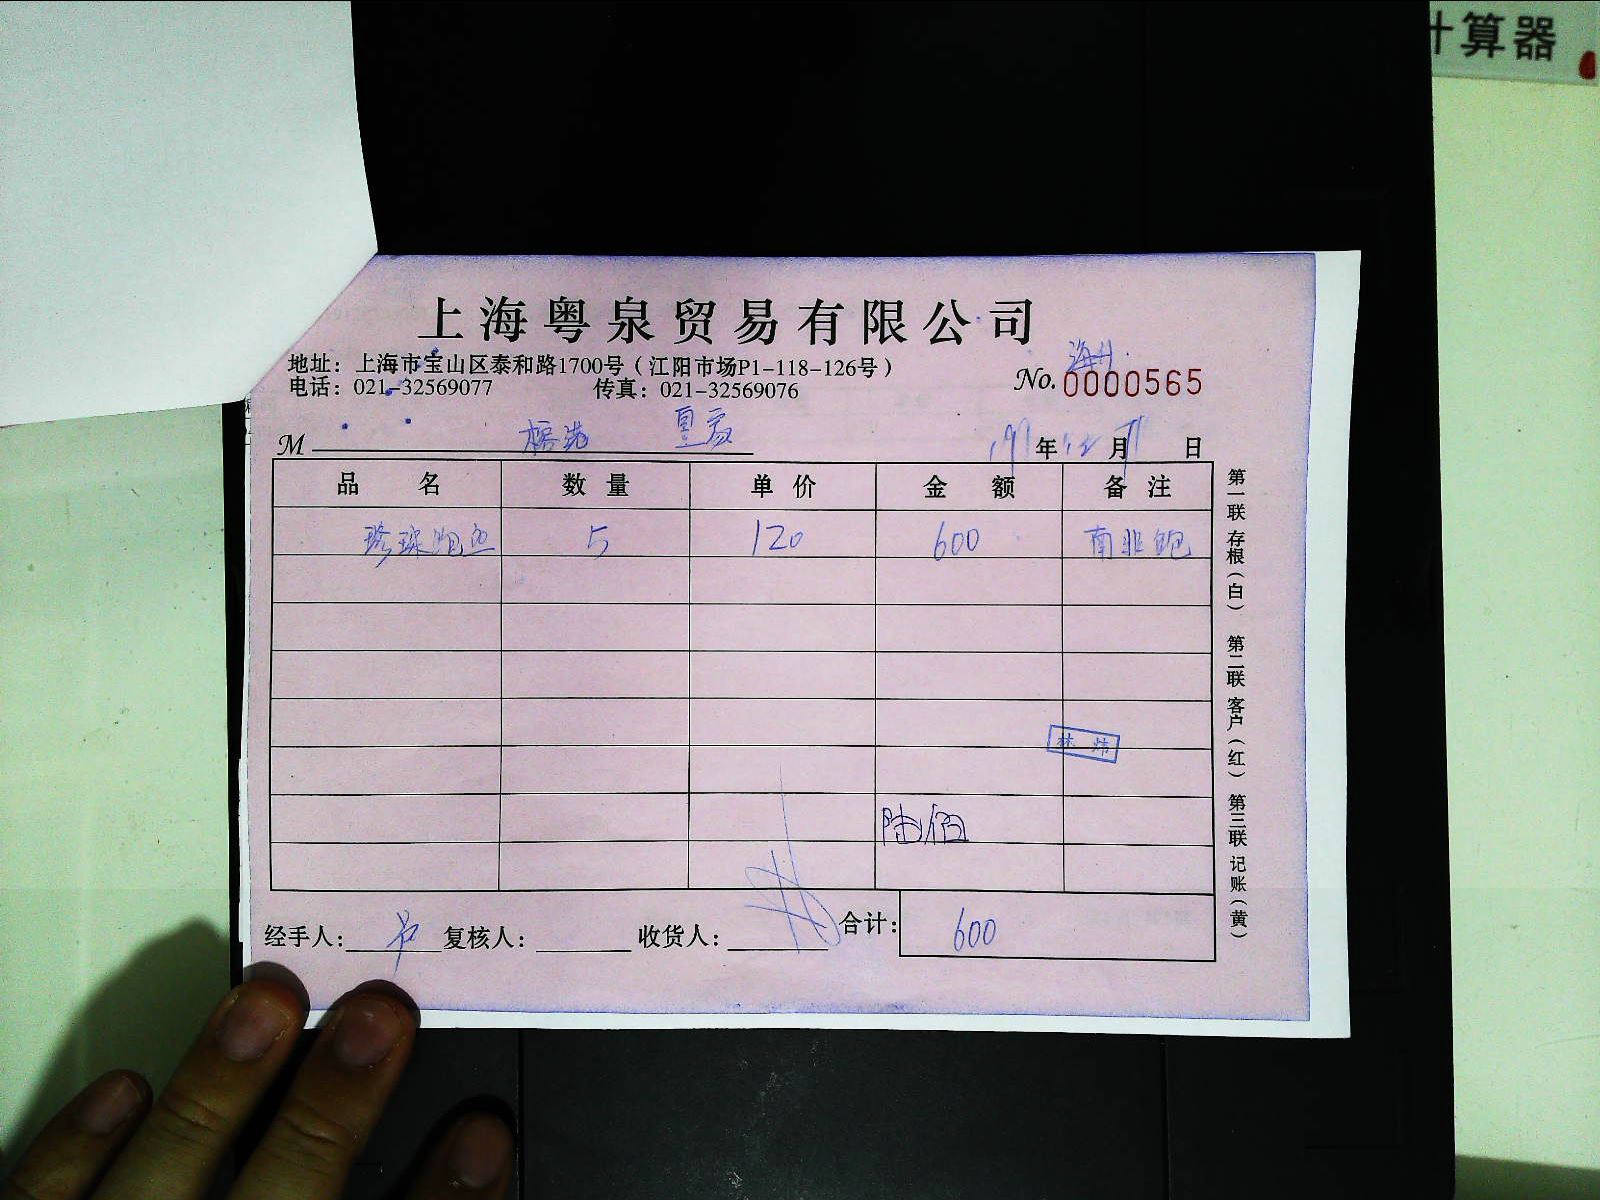 计算器
上海粤泉贸易有限公司
地址：上海市宝山区泰和路1700号（江阳市场P1-118-126号）
电话：021-32569077 传真：021-32569076
No. 0000565
M 年 月 日
品名 数量 单价 金额 备注
珍珠鲍鱼 5 120 600 南非鲍
陆佰
经手人： 复核人： 收货人： 合计： 600
第一联 存根（白） 第二联 客户（红） 第三联 记账（黄）